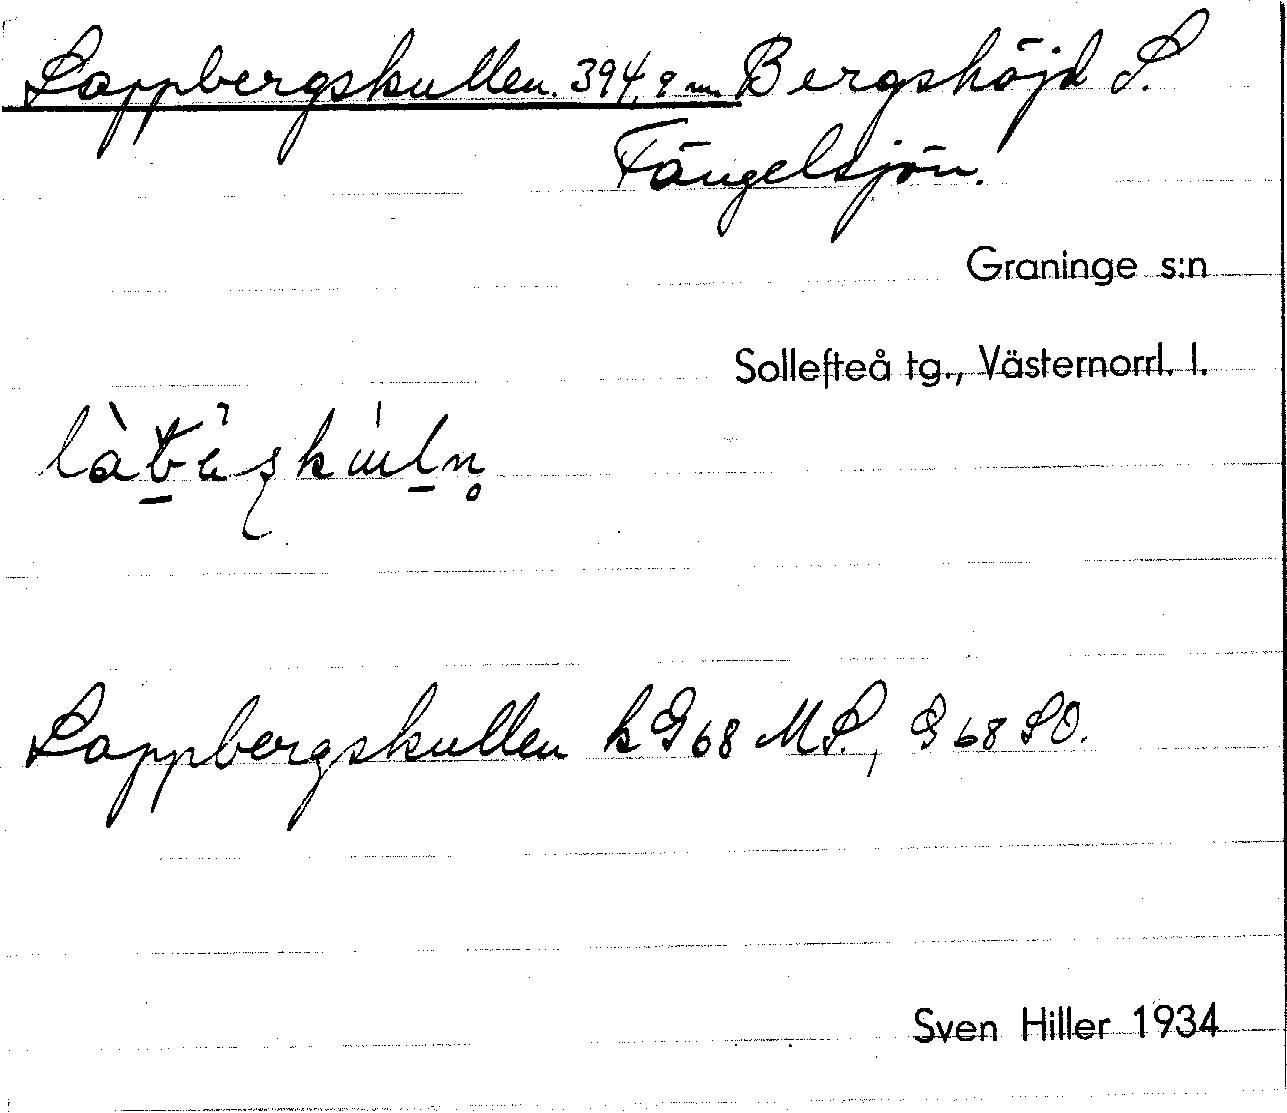 Lappbergskullen. 394,9 m. Bergshöjd S.
Fängelsjön.
Graninge s:n
Sollefteå tg., Västernorrl. l.
Lappbergskullen k G 68 M S., G 68 S O.
Sven Hiller 1934